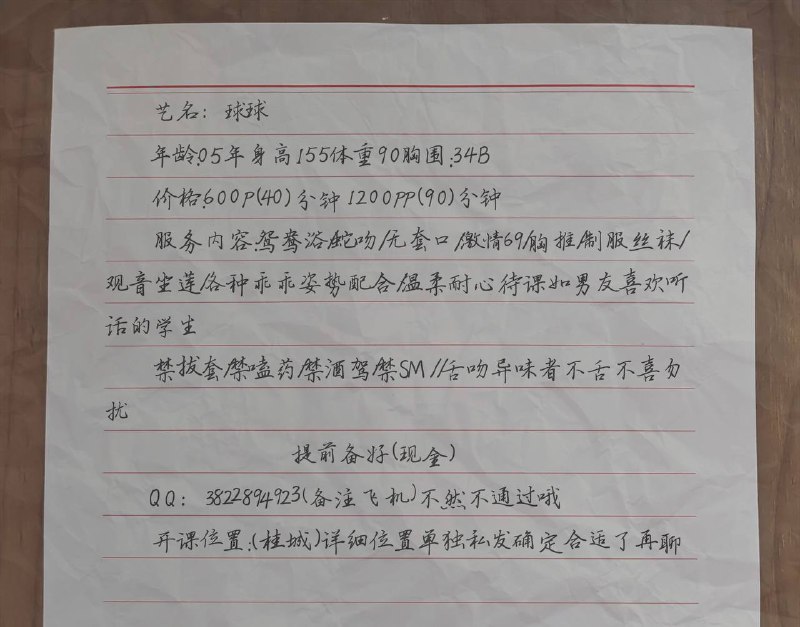 艺名：球球
年龄:05年身高155体重90胸围:34B
价格:600P(40)分钟1200PP(90)分钟
服务内容:鸳鸯浴/蛇吻/无套口/激情69/胸推/制服丝袜/
观音坐莲/各种乖乖姿势配合/温柔耐心待课如男友喜欢听
话的学生
禁拔套/禁嗑药/禁酒驾/禁SM//舌吻异味者不舌不喜勿
扰
提前备好(现金)
QQ：3822894923(备注飞机)不然不通过哦
开课位置:(桂城)详细位置单独私发确定合适了再聊